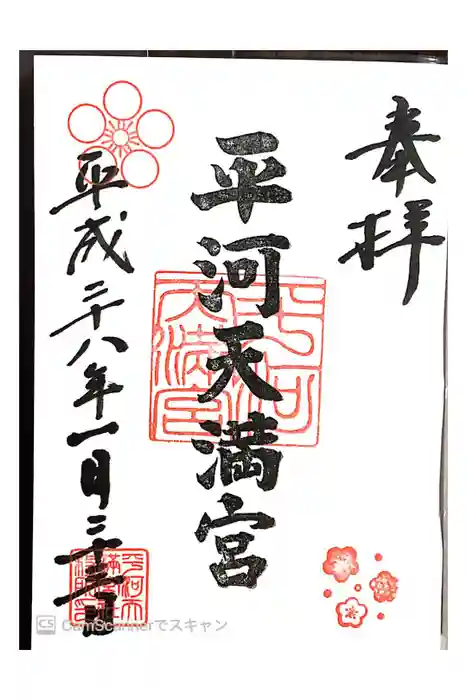 奉拝
平河天満宮
平成二十八年一月二十三日
CS CamScannerでスキャン